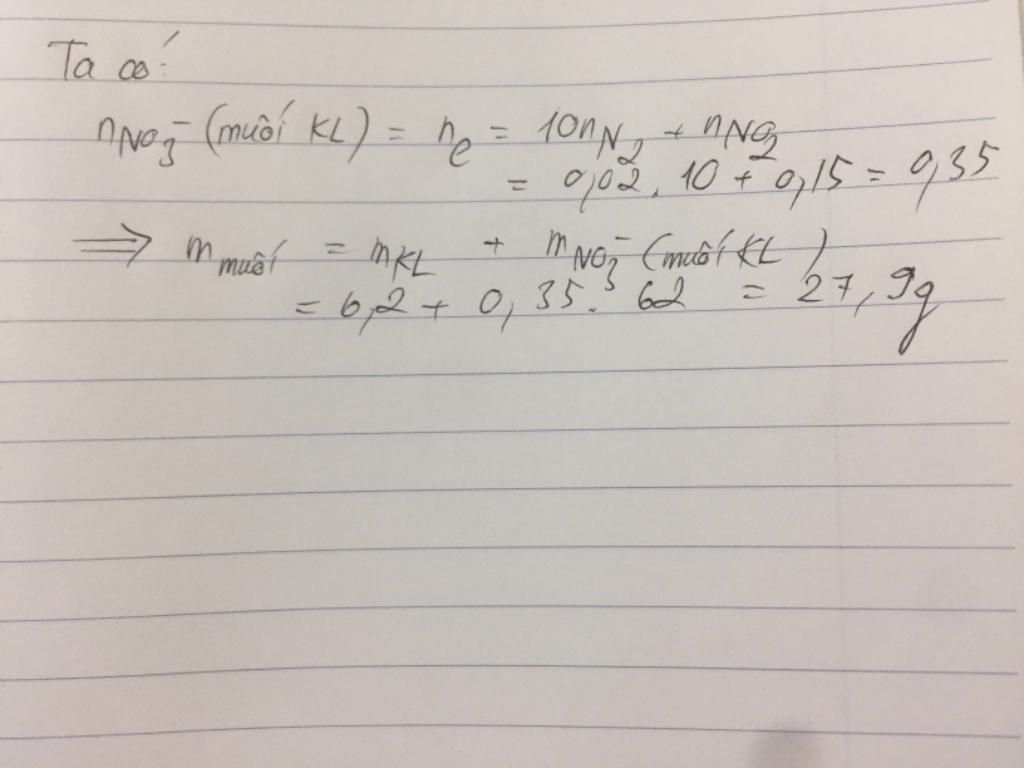 Ta có:
nNO₃⁻ (muối KL) = nₑ = 10nN₂ + nNO₂
= 0,02 . 10 + 0,15 = 0,35
⟹ m muối = mKL + mNO₃⁻ (muối KL)
= 6,2 + 0,35 . 62 = 27,9g